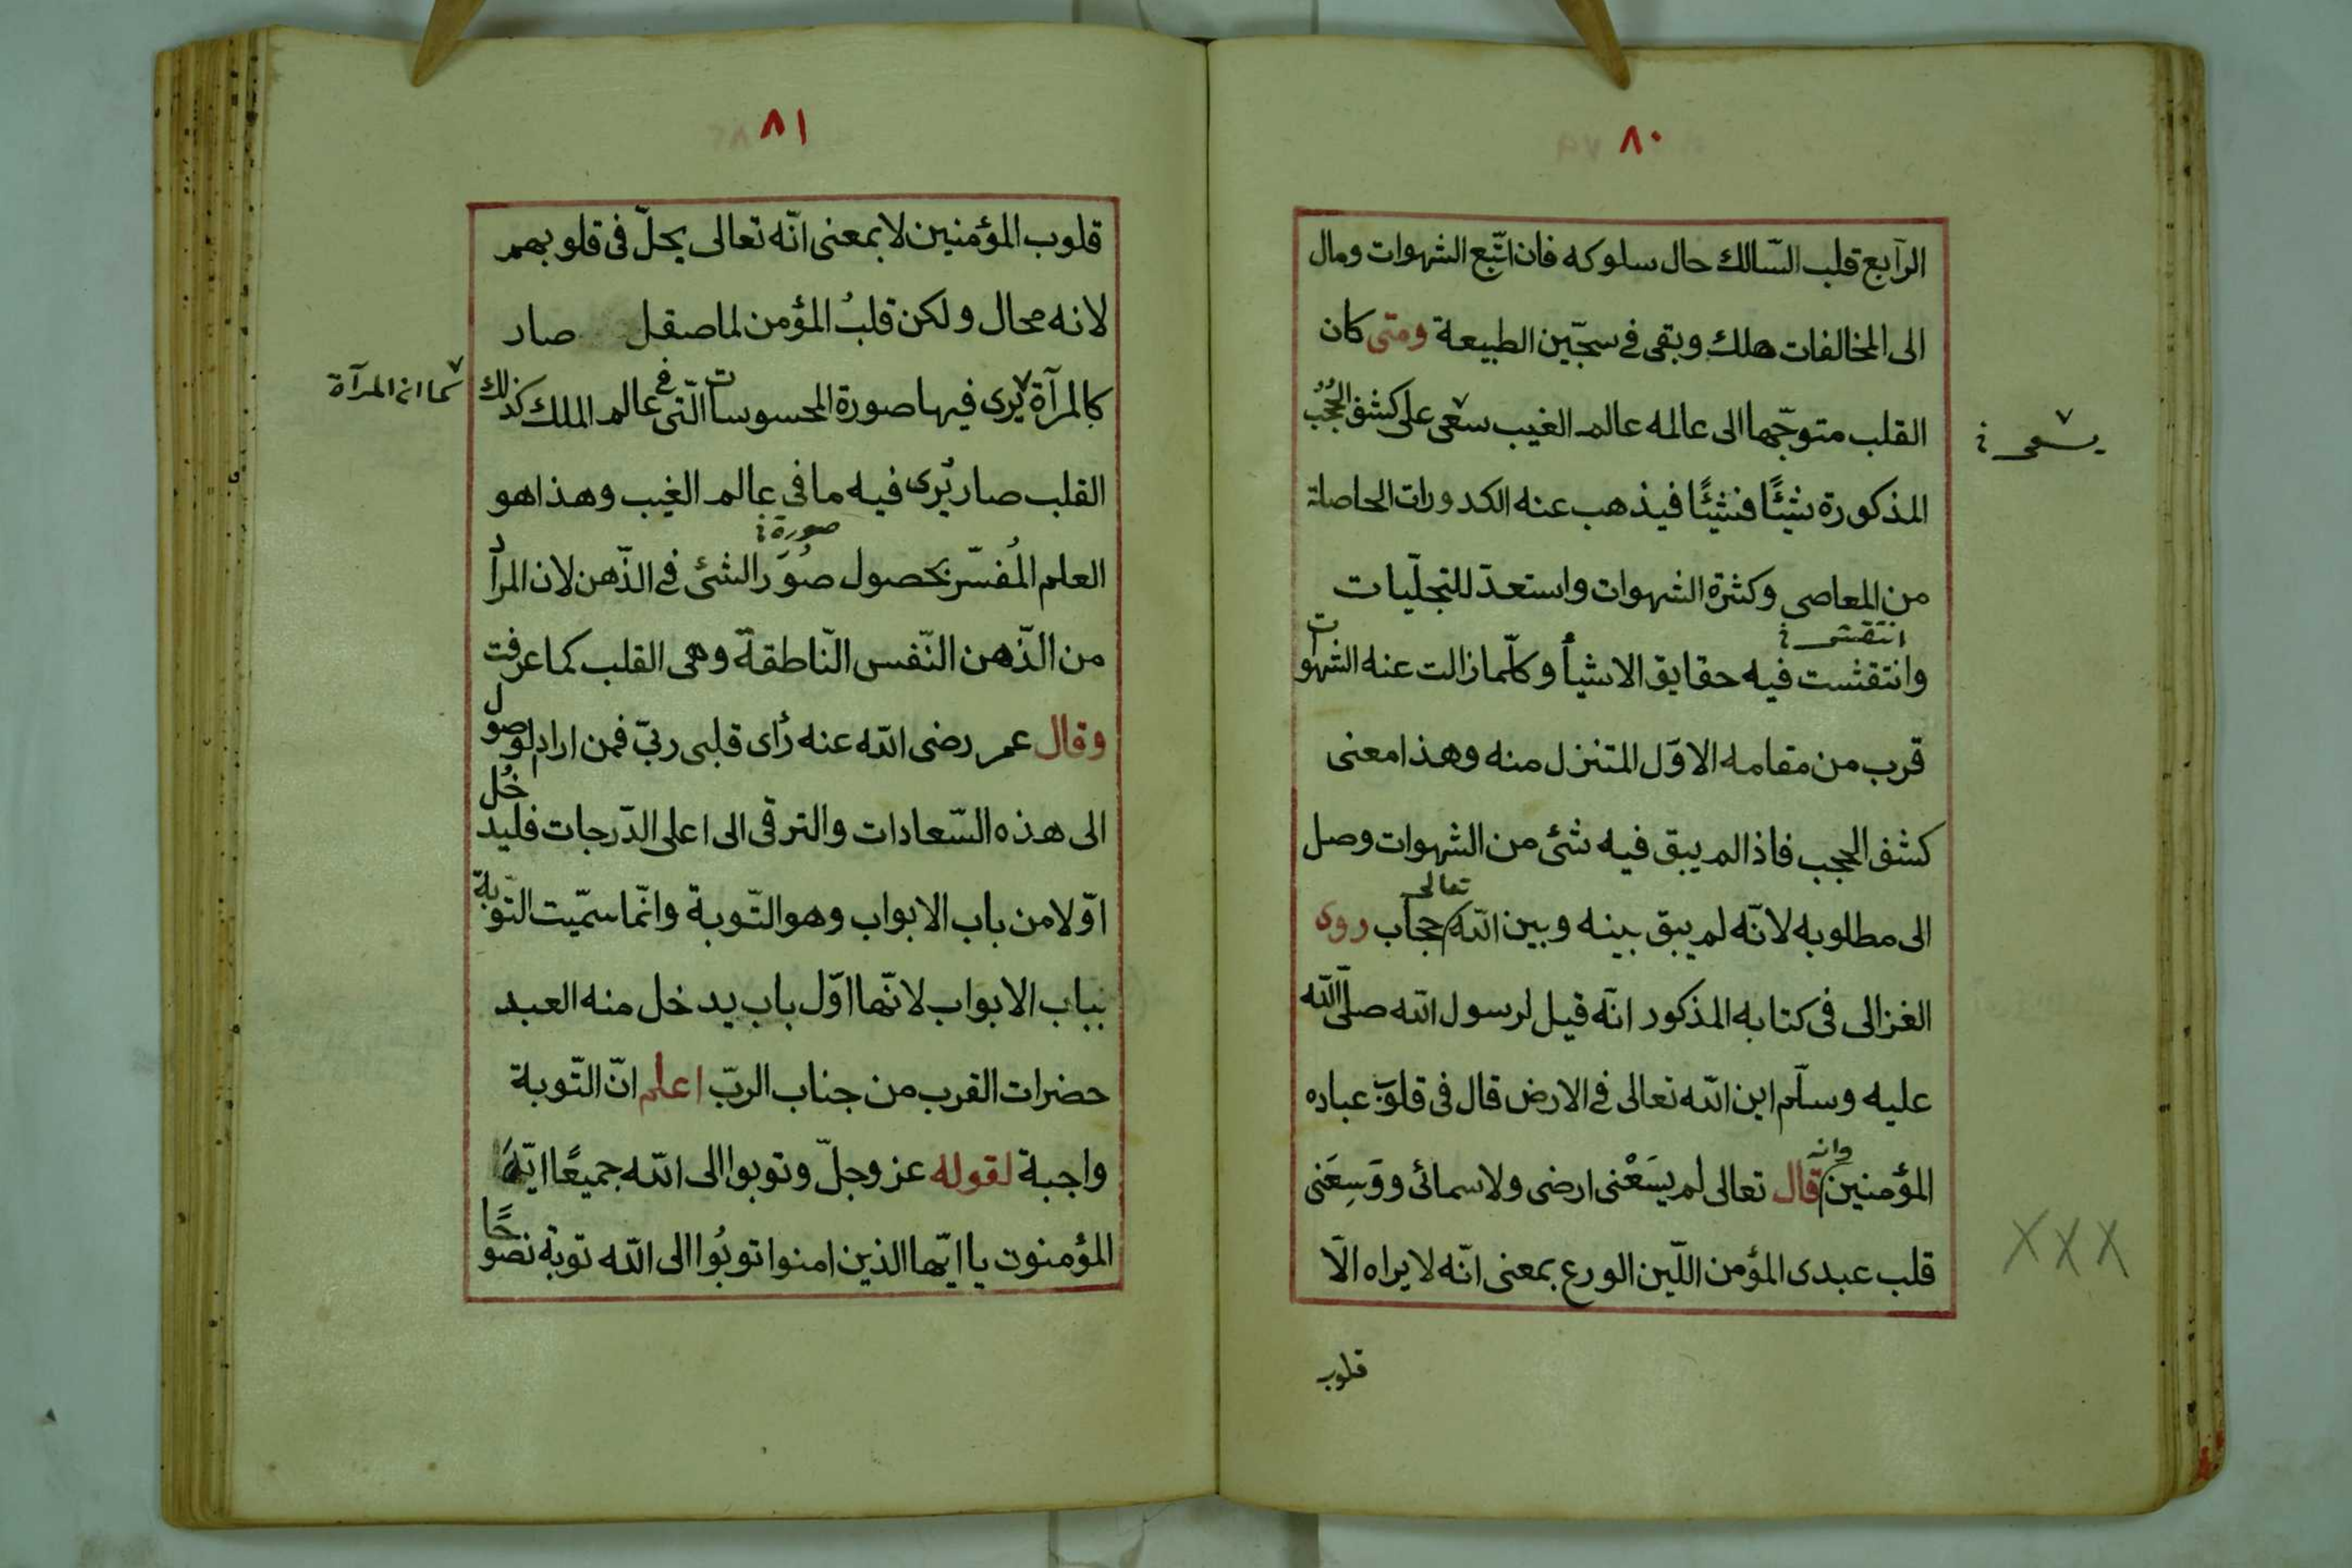 ٨٠
الرّابع قلب السّالك حال سلوكه فان اتّبع الشهوات ومال
الى المخالفات هلك وبقى فى سجّين الطبيعة ومتى كان
القلب متوجّها الى عالمه عالم الغيب سعى على كشف الحُجُب
يسعى
المذكورة شيئًا فشيئًا فيذهب عنه الكدورات الحاصلة
من المعاصى وكثرة الشهوات واستعدّ للتجلّيات
انتقش
وانتقشت فيه حقايق الاشيأ وكلّما زالت عنه الشهوات
قرب من مقامه الاوّل المتنزل منه وهذا معنى
كشف الحجب فاذا لم يبق فيه شئ من الشهوات وصل
الى مطلوبه لانّه لم يبق بينه وبين الله تعالى حجاب روى
الغزالى فى كتابه المذكور انّه قيل لرسول الله صلّى الله
عليه وسلّم اين الله تعالى فى الارض قال فى قلوب عباده
المؤمنين وانه قال تعالى لم يسَعْنى ارضى ولا سمائى ووَسِعَنى
قلب عبدى المؤمن اللّين الورع بمعنى انّه لا يراه الّا
قلوب
XXX
٨١
قلوب المؤمنين لا بمعنى انّه تعالى يحلّ فى قلوبهم
لانه محال ولكن قلبُ المؤمن لما صقل صار
كالمرآة يُرى فيها صورة المحسوسات الّتى فى عالم الملك كذلك
كما ان المرآة
القلب صار يُرى فيه ما فى عالم الغيب وهذا هو
صورة
العلم المُفسّر بحصول صُوَر الشئ فى الذّهن لان المرأد
من الذّهن النّفس النّاطقة وهى القلب كما عرفت
وقال عمر رضى الله عنه رأى قلبى ربّى فمن اراد الوصول
الى هذه السّعادات والترقّى الى اعلى الدّرجات فليدخُل
اوّلا من باب الابواب وهو التّوبة وانّما سمّيت التّوبة
بباب الابواب لانّها اوّل باب يدخل منه العبد
حضرات القرب من جناب الربّ اعلم انّ التّوبة
واجبة لقوله عز وجلّ وتوبوا الى الله جميعًا ايّهَ
المؤمنون يا ايّها الذين امنوا توبُوا الى الله توبة نصوحًا